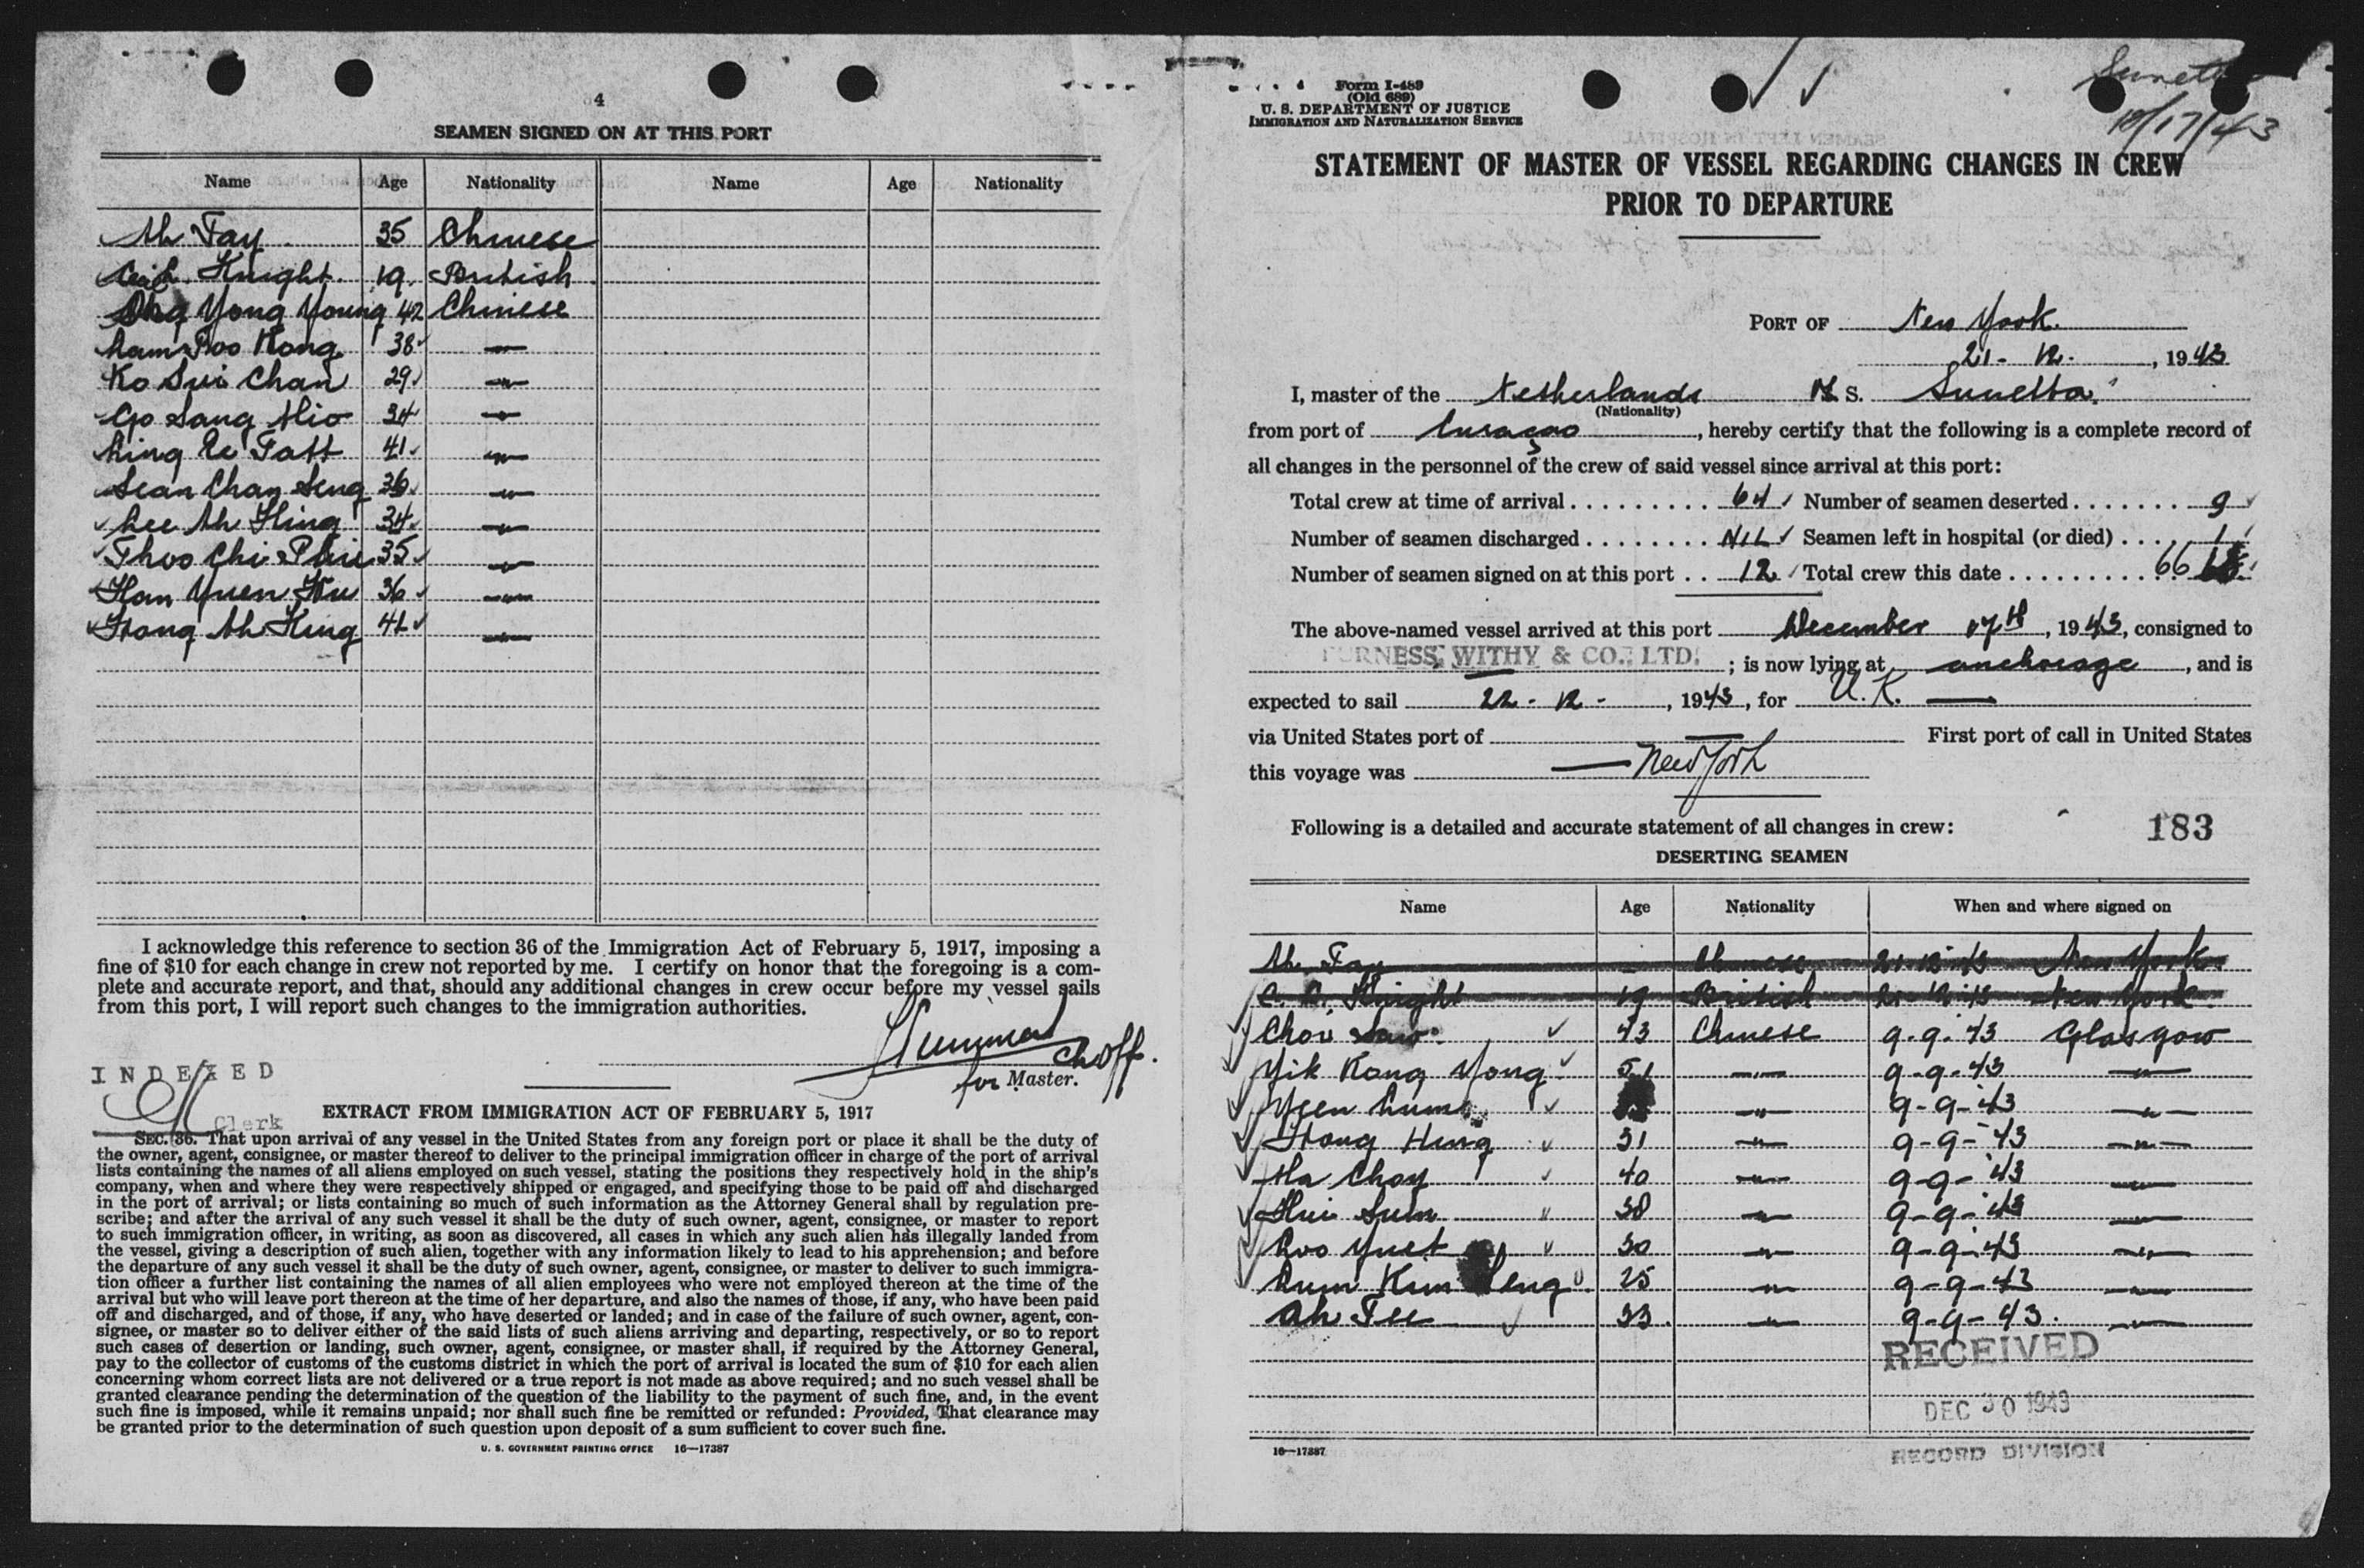 4
SEAMEN SIGNED ON AT THIS PORT
Name Age Nationality Name Age Nationality
Ah Fay 35 Chinese
Knight 19 British
Yong Young 42 Chinese
Kong 38 — " —
Ko Sui Chan 29 — " —
Go Sang Hio 34 — " —
Ling Ee Tatt 41 — " —
Sean Chan Seng 36 — " —
Lee Ah Hing 34 — " —
Thoo Chi 35 — " —
Han Yuen 36 — " —
Ah 42 — " —
I acknowledge this reference to section 36 of the Immigration Act of February 5, 1917, imposing a
fine of $10 for each change in crew not reported by me. I certify on honor that the foregoing is a com-
plete and accurate report, and that, should any additional changes in crew occur before my vessel sails
from this port, I will report such changes to the immigration authorities.
Ch Off.
for Master.
INDEXED
Clerk
EXTRACT FROM IMMIGRATION ACT OF FEBRUARY 5, 1917
SEC. 36. That upon arrival of any vessel in the United States from any foreign port or place it shall be the duty of
the owner, agent, consignee, or master thereof to deliver to the principal immigration officer in charge of the port of arrival
lists containing the names of all aliens employed on such vessel, stating the positions they respectively hold in the ship's
company, when and where they were respectively shipped or engaged, and specifying those to be paid off and discharged
in the port of arrival; or lists containing so much of such information as the Attorney General shall by regulation pre-
scribe; and after the arrival of any such vessel it shall be the duty of such owner, agent, consignee, or master to report
to such immigration officer, in writing, as soon as discovered, all cases in which any such alien has illegally landed from
the vessel, giving a description of such alien, together with any information likely to lead to his apprehension; and before
the departure of any such vessel it shall be the duty of such owner, agent, consignee, or master to deliver to such immigra-
tion officer a further list containing the names of all alien employees who were not employed thereon at the time of the
arrival but who will leave port thereon at the time of her departure, and also the names of those, if any, who have been paid
off and discharged, and of those, if any, who have deserted or landed; and in case of the failure of such owner, agent, con-
signee, or master so to deliver either of the said lists of such aliens arriving and departing, respectively, or so to report
such cases of desertion or landing, such owner, agent, consignee, or master shall, if required by the Attorney General,
pay to the collector of customs of the customs district in which the port of arrival is located the sum of $10 for each alien
concerning whom correct lists are not delivered or a true report is not made as above required; and no such vessel shall be
granted clearance pending the determination of the question of the liability to the payment of such fine, and, in the event
such fine is imposed, while it remains unpaid; nor shall such fine be remitted or refunded: Provided, That clearance may
be granted prior to the determination of such question upon deposit of a sum sufficient to cover such fine.
U. S. GOVERNMENT PRINTING OFFICE 16—17387
Form I-489
(Old 689)
U. S. DEPARTMENT OF JUSTICE
IMMIGRATION AND NATURALIZATION SERVICE
Sunetta
12/17/43
STATEMENT OF MASTER OF VESSEL REGARDING CHANGES IN CREW
PRIOR TO DEPARTURE
PORT OF New York.
21 - 12 - , 1943
I, master of the Netherlands M S. Sunetta
(Nationality)
from port of Curaçao, hereby certify that the following is a complete record of
all changes in the personnel of the crew of said vessel since arrival at this port:
Total crew at time of arrival 64 Number of seamen deserted 9
Number of seamen discharged NIL Seamen left in hospital (or died) 1
Number of seamen signed on at this port 12 Total crew this date 66
The above-named vessel arrived at this port December 17th, 1943, consigned to
FURNESS, WITHY & CO., LTD. ; is now lying at anchorage, and is
expected to sail 22 - 12 - , 1943, for U. K. —
via United States port of — First port of call in United States
this voyage was — New York
Following is a detailed and accurate statement of all changes in crew: 183
DESERTING SEAMEN
Name Age Nationality When and where signed on
Ah Fay - Chinese 21-12-43 New York
C. A. Knight 19 British 21-12-43 New York
Choi 43 Chinese 9-9-43 Glasgow
Yik Kong Yong 51 — " — 9-9-43 — " —
Lum — " — 9-9-43 — " —
Hung 31 — " — 9-9-43 — " —
Ha Choy 40 — " — 9-9-43 — " —
Hui Sum 38 — " — 9-9-43 — " —
Loo Yuet 30 — " — 9-9-43 — " —
Lum Kim 25 — " — 9-9-43 — " —
Ah Tee 33 — " — 9-9-43. — " —
RECEIVED
DEC 30 1943
RECORD DIVISION
16—17387